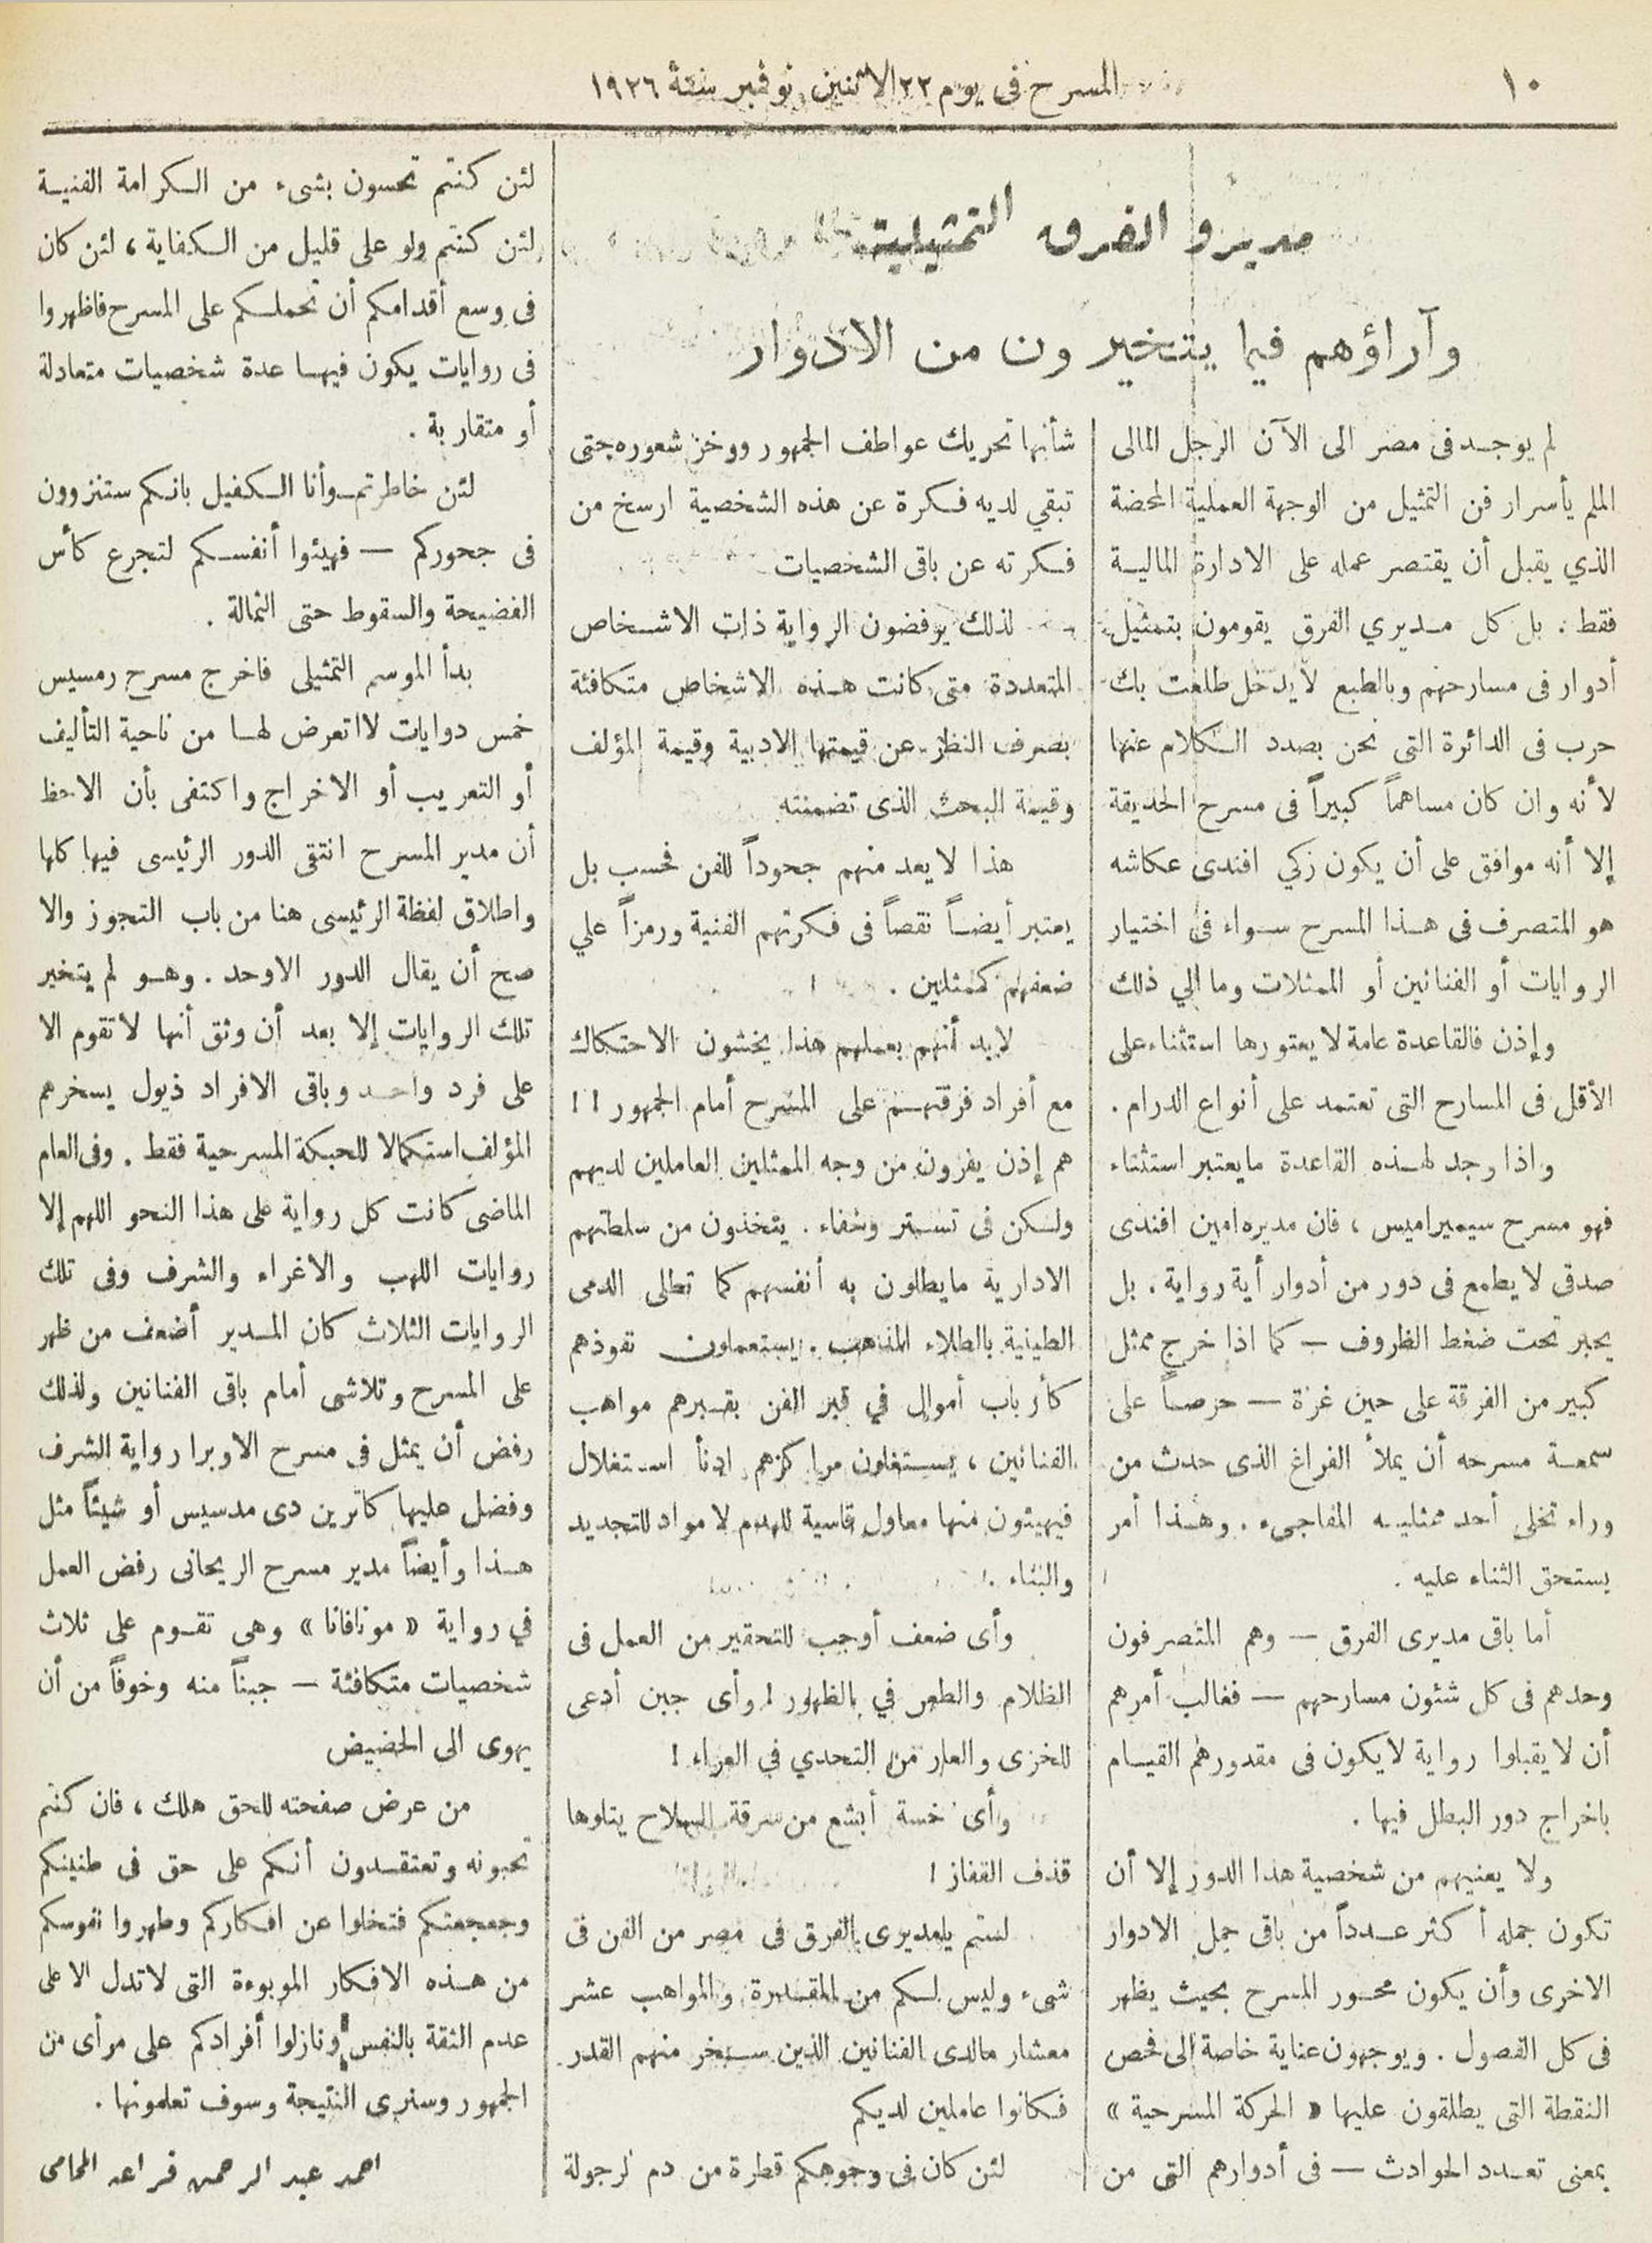 ١٠
المسرح فى يوم ٢٢ الاثنين نوفمبر سنة ١٩٢٦
مديرو الفرق التمثيلية
وآراؤهم فيما يتخيرون من الادوار
لم يوجد فى مصر الى الآن الرجل المالى
الملم بأسرار فن التمثيل من الوجهة العملية المحضة
الذي يقبل أن يقتصر عمله على الادارة المالية
فقط . بل كل مديري الفرق يقومون بتمثيل
أدوار فى مسارحهم وبالطبع لا يدخل طلعت بك
حرب فى الدائرة التى نحن بصدد الكلام عنها
لأنه وان كان مساهماً كبيراً فى مسرح الحديقة
إلا أنه موافق على أن يكون زكي افندى عكاشه
هو المتصرف فى هذا المسرح سواء فى اختيار
الروايات أو الفنانين أو الممثلات وما الي ذلك
وإذن فالقاعدة عامة لا يعتورها استثناء على
الأقل فى المسارح التى تعتمد على أنواع الدرام .
واذا وجد لهذه القاعدة مايعتبر استثناء
فهو مسرح سيميراميس ، فان مديره امين افندى
صدقى لا يطمع فى دور من أدوار أية رواية . بل
يجبر تحت ضغط الظروف — كما اذا خرج ممثل
كبير من الفرقة على حين غرة — حرصاً على
سمعة مسرحه أن يملأ الفراغ الذى حدث من
وراء تخلى أحد ممثليه المفاجىء . وهذا أمر
يستحق الثناء عليه .
أما باقى مديرى الفرق — وهم المتصرفون
وحدهم فى كل شئون مسارحهم — فغالب أمرهم
أن لا يقبلوا رواية لا يكون فى مقدورهم القيام
باخراج دور البطل فيها .
ولا يعنيهم من شخصية هذا الدور إلا أن
تكون جمله أكثر عدداً من باقى جمل الادوار
الاخرى وأن يكون محور المسرح بحيث يظهر
فى كل الفصول . ويوجهون عناية خاصة الى فحص
النقطة التى يطلقون عليها « الحركة المسرحية »
بمعنى تعدد الحوادث — فى أدوارهم التى من
شأنها تحريك عواطف الجمهور ووخز شعوره حتى
تبقي لديه فكرة عن هذه الشخصية ارسخ من
فكرته عن باقى الشخصيات
لذلك يرفضون الرواية ذات الاشخاص
المتعددة متى كانت هذه الاشخاص متكافئة
بصرف النظر عن قيمتها الادبية وقيمة المؤلف
وقيمة البحث الذى تضمنته
هذا لا يعد منهم جحوداً للفن فحسب بل
يعتبر أيضاً نقصاً فى فكرتهم الفنية ورمزاً علي
ضعفهم كممثلين .
لابد أنهم بعملهم هذا يخشون الاحتكاك
مع أفراد فرقتهم على المسرح أمام الجمهور ! !
هم إذن يفرون من وجه الممثلين العاملين لديهم
ولكن فى تستر وخفاء . يتخذون من سلطتهم
الادارية مايطلون به أنفسهم كما تطلى الدمى
الطينية بالطلاء المذهب . يستعملون نفوذهم
كأرباب أموال في قبر الفن بقبرهم مواهب
الفنانين ، يستغلون مراكزهم ادنأ استغلال
فيهيئون منها معاول قاسية للهدم لا مواد للتجديد
والبناء .
وأى ضعف أوجب للتحقير من العمل فى
الظلام والطعن في الظهور ! وأى جبن أدعى
للخزى والعار من التحدي في العراء !
وأى خسة أبشع من سرقة السلاح يتلوها
قذف القفاز !
لستم يامديرى الفرق فى مصر من الفن فى
شىء وليس لكم من المقدرة والمواهب عشر
معشار مالدى الفنانين الذين سخر منهم القدر
فكانوا عاملين لديكم
لئن كان فى وجوهكم قطرة من دم لرجولة
لئن كنتم تحسون بشىء من الكرامة الفنية
لئن كنتم ولو على قليل من الكفاية ، لئن كان
فى وسع أقدامكم أن تحملكم على المسرح فاظهروا
فى روايات يكون فيها عدة شخصيات متعادلة
أو متقاربة .
لئن خاطرتم وأنا الكفيل بانكم ستنزوون
فى جحوركم — فهيئوا أنفسكم لتجرع كأس
الفضيحة والسقوط حتى الثمالة .
بدأ الموسم التمثيلى فاخرج مسرح رمسيس
خمس دوايات لا اتعرض لها من ناحية التأليف
أو التعريب أو الاخراج واكتفى بأن الاحظ
أن مدير المسرح انتقى الدور الرئيسى فيها كلها
واطلاق لفظة الرئيسى هنا من باب التجوز والا
صح أن يقال الدور الاوحد . وهو لم يتخير
تلك الروايات إلا بعد أن وثق أنها لا تقوم الا
على فرد واحد وباقى الافراد ذيول يسخرهم
المؤلف استكمالا للحبكة المسرحية فقط . وفى العام
الماضى كانت كل رواية على هذا النحو اللهم إلا
روايات اللهب والاغراء والشرف وفى تلك
الروايات الثلاث كان المدير أضعف من ظهر
على المسرح وتلاشى أمام باقى الفنانين ولذلك
رفض أن يمثل فى مسرح الاوبرا رواية الشرف
وفضل عليها كاترين دى مدسيس أو شيئاً مثل
هذا وأيضاً مدير مسرح الريحانى رفض العمل
في رواية « مونافانا » وهى تقوم على ثلاث
شخصيات متكافئة — جبناً منه وخوفاً من أن
يهوى الى الحضيض
من عرض صفحته للحق هلك ، فان كنتم
تحبونه وتعتقدون أنكم على حق فى طنينكم
وجعجعتكم فتخلوا عن افكاركم وطهروا نفوسكم
من هذه الافكار الموبوءة التى لا تدل الا على
عدم الثقة بالنفس ونازلوا أفرادكم على مرأى من
الجمهور وسنرى النتيجة وسوف تعلمونها .
احمد عبد الرحمن قراعه المحامى